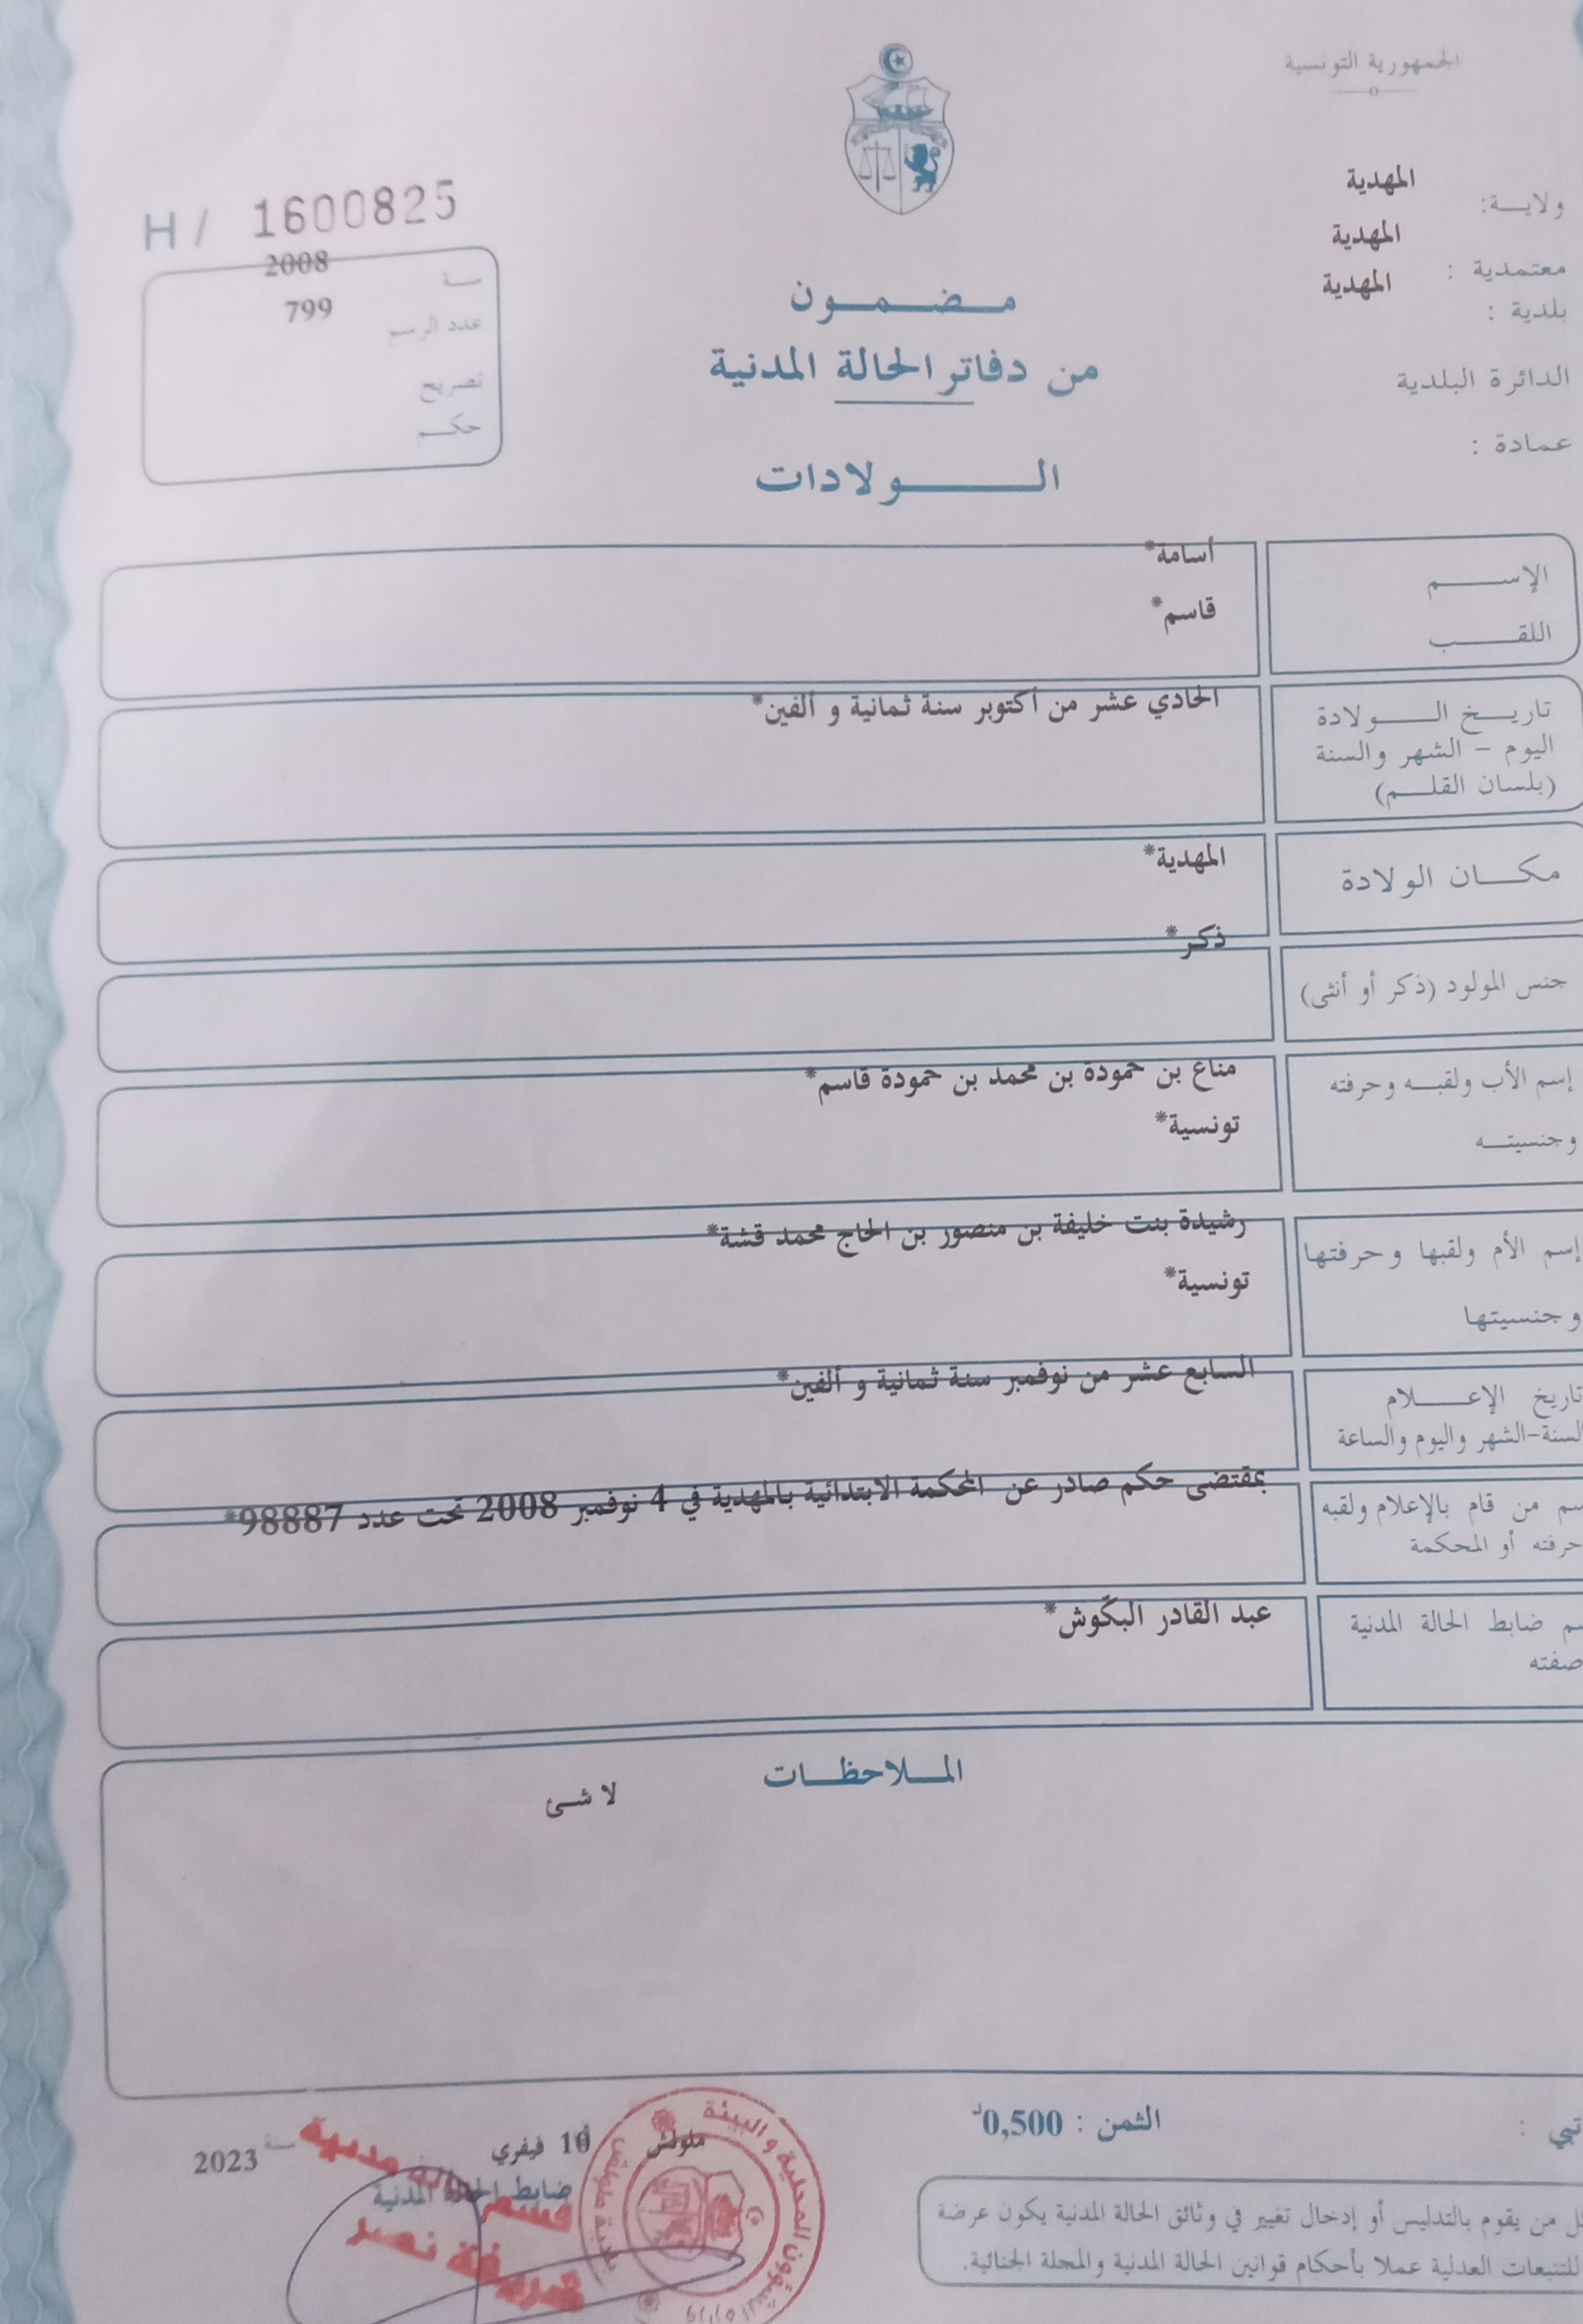 الجمهورية التونسية
ولاية: المهدية
معتمدية : المهدية
بلدية : المهدية
الدائرة البلدية
عمادة :
H / 1600825
سنة 2008
عدد الرسم 799
تصريح
حكم
مضمون
من دفاتر الحالة المدنية
الولادات
الإسم أسامة*
اللقب قاسم*
تاريخ الولادة الحادي عشر من أكتوبر سنة ثمانية و ألفين*
اليوم - الشهر والسنة
(بلسان القلم)
مكان الولادة المهدية*
جنس المولود (ذكر أو أنثى) ذكر*
إسم الأب ولقبه وحرفته مناع بن حمودة بن محمد بن حمودة قاسم*
وجنسيته تونسية*
إسم الأم ولقبها وحرفتها رشيدة بنت خليفة بن منصور بن الحاج محمد قشة*
وجنسيتها تونسية*
تاريخ الإعلام السابع عشر من نوفمبر سنة ثمانية و ألفين*
السنة-الشهر واليوم والساعة
سم من قام بالإعلام ولقبه بمقتضى حكم صادر عن المحكمة الابتدائية بالمهدية في 4 نوفمبر 2008 تحت عدد 98887*
حرفته أو المحكمة
سم ضابط الحالة المدنية عبد القادر البكّوش*
صفته
الملاحظات
لا شئ
الثمن : 0,500د
ملولش 10 فيفري سنة 2023
ضابط الحالة المدنية
من يقوم بالتدليس أو إدخال تغيير في وثائق الحالة المدنية يكون عرضة
للتتبعات العدلية عملا بأحكام قوانين الحالة المدنية والمجلة الجنائية.